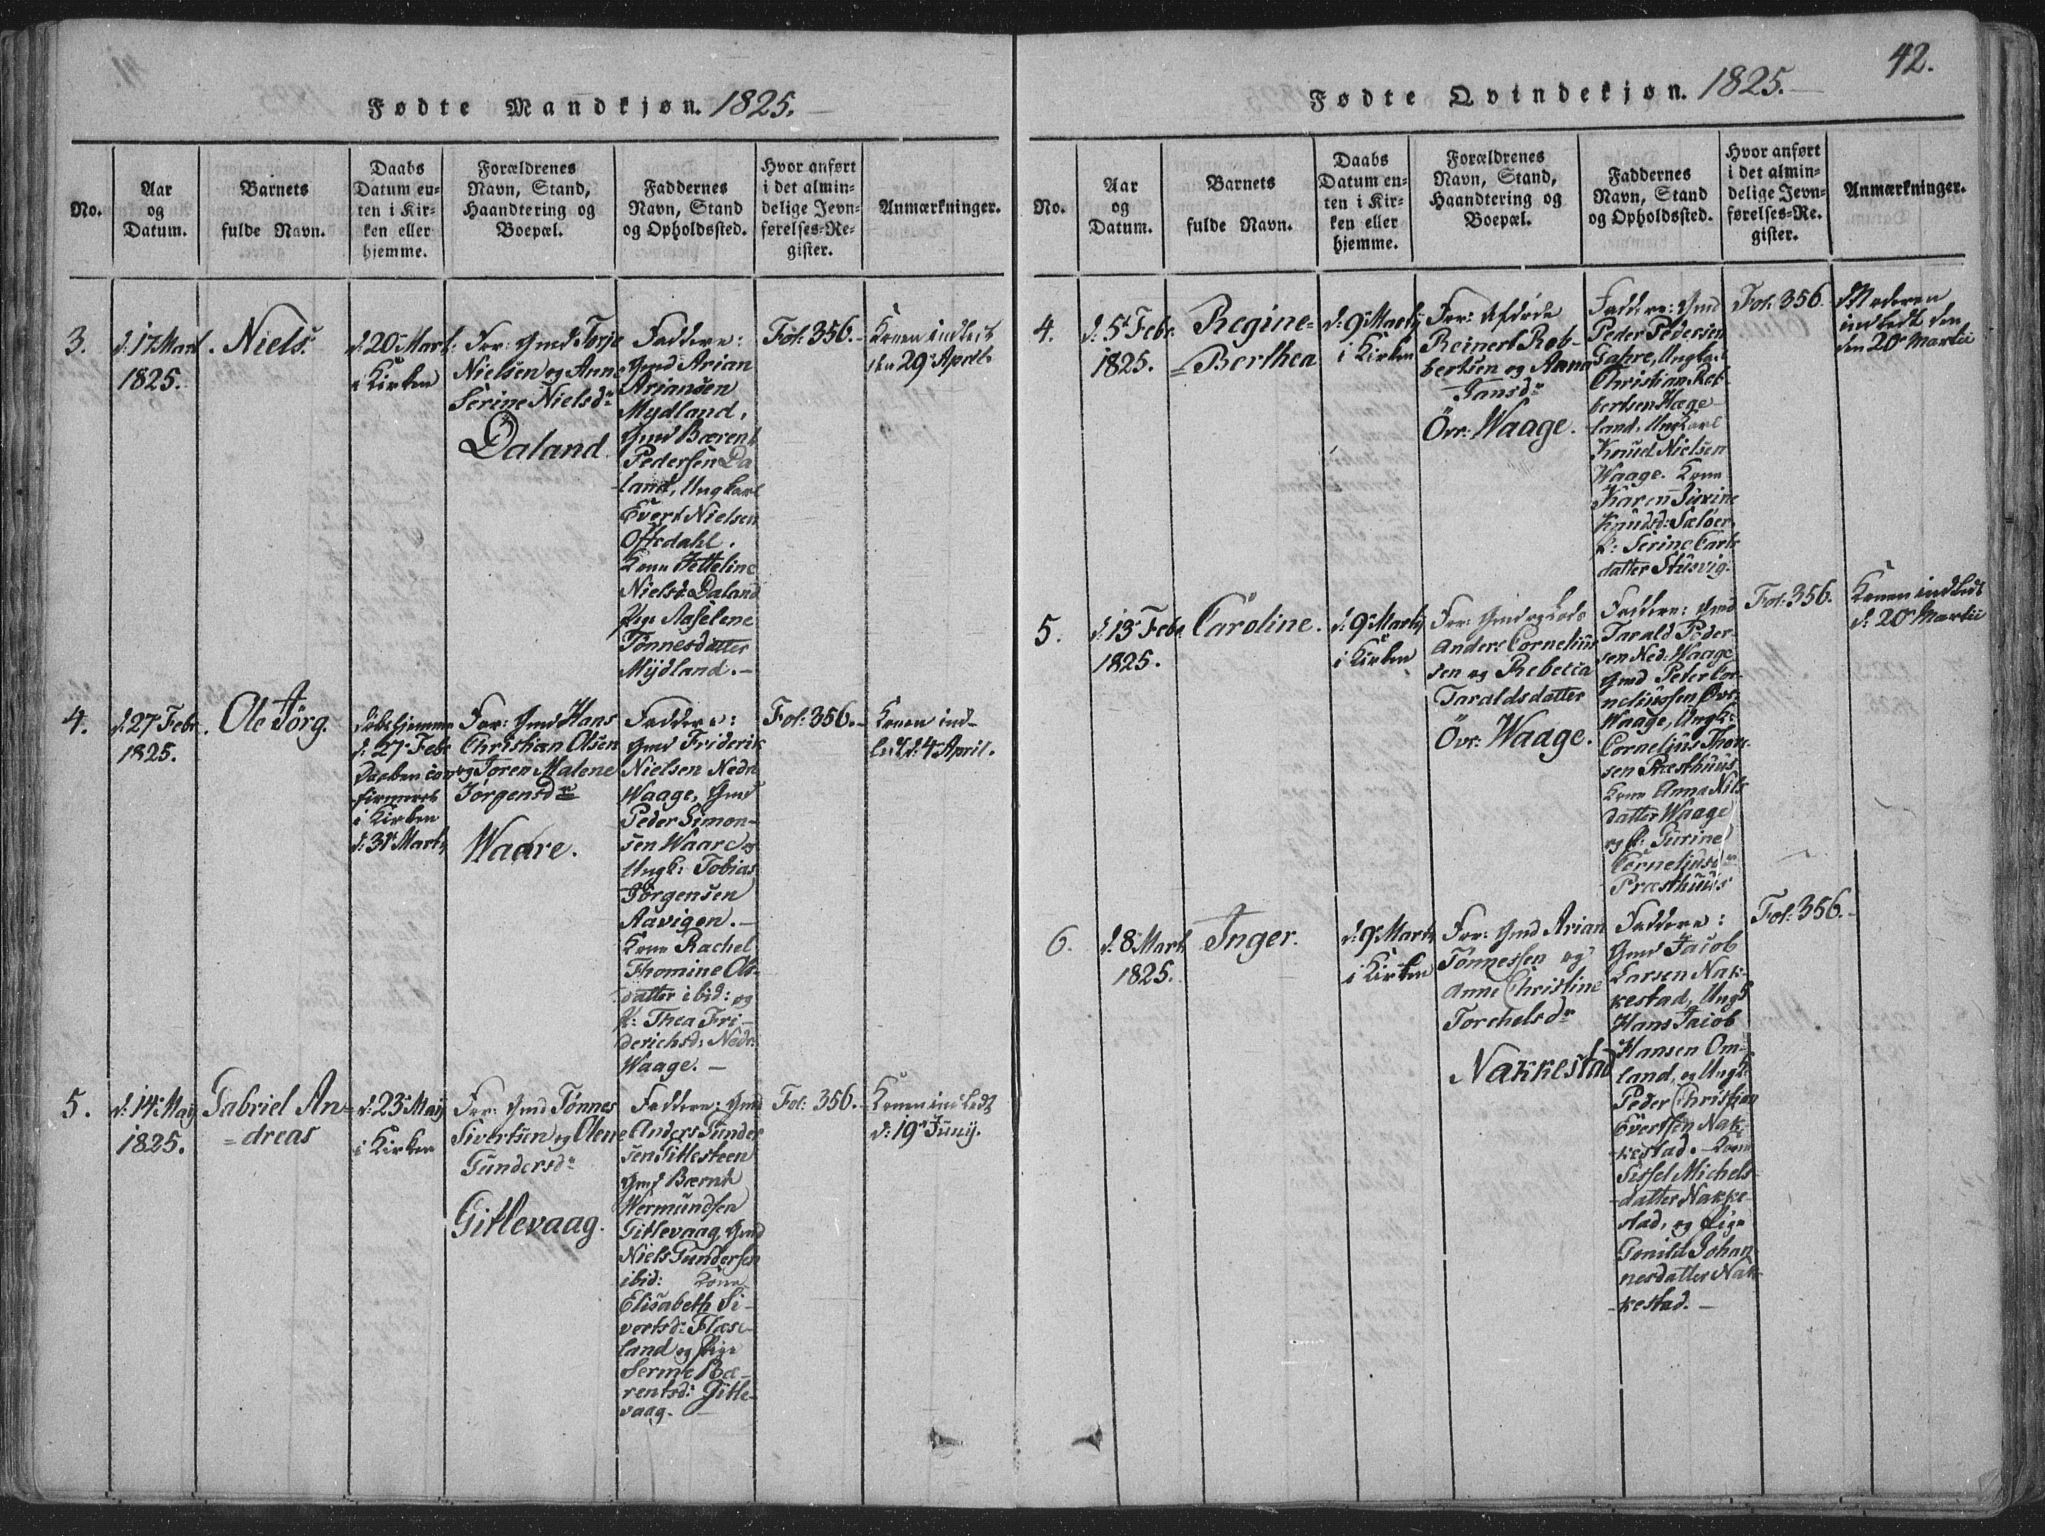 Fødte Mandkjøn. 1825.
No.
Aar
og
Datum.
Barnets
fulde Navn.
Daabs
Datum en-
ten i Kir-
ken eller
hjemme.
Forældrenes
Navn, Stand,
Haandtering og
Boepæl.
Faddernes
Navn, Stand
og Opholdssted.
Hvor anført
i det almin-
delige Jevn-
førelses-Re-
gister.
Anmærkninger.
3.
d. 17 Mart
1825.
Niels.
d. 20 Mart.
i Kirken
For: Gmd Torje
Nielsen og Anne
Serine Nielsdr
Daland.
Faddere:
Gmd Arian
Ariansen
Mydland,
Gmd Bærent
Pedersen Da
land, Ungkarl
Evert Nielsen
Offedahl.
Kone Jetteline
Nielsd: Daland
Pige Aaselene
Tønnesdatter
Mydland.
Fol: 356.
Konen indledt
den 29 April
4.
d. 27 Febr.
1825.
Ole Jørg.
døbt hjemme
d: 27 Febr
Daaben con-
firmeret
i Kirken
d: 31 Martj
For: Gmd Hans
Christian Olsen
og Toren Malene
Jørgensdr
Waare.
Faddere:
Gmd Friderik
Nielsen Nedr
Waage, Gmd
Peder Simon-
sen Waare og
Ungk: Tobias
Jørgensen
Aavigen.
Kone Rachel
Thomine Ols-
datter ibid: og
P: Thea Fri-
derichsd: Nedr:
Waage.
Fol: 356.
Konen ind-
ledt d: 4 April.
5.
d: 14 Maij
1825.
Gabriel An=
=dreas
d: 23 Maij
i Kirken
For: Gmd Tønnes
Sivertsen og Olene
Gundersdr
Gitlevaag.
Faddere: Gmd
Anders Gunder
sen Gitlesteen
Gmd Bærnt
Wermundsen
Gitlevaag, Gmd
Niels Gundersen
ibid: Kone
Elisabeth Si-
vertsd: Flæse-
land og Pige
Serine Bæ-
rentsd: Gitle-
vaag.
Fol: 356.
Konen indledt
d: 19 Junij.
42.
Fødte Qvindekjøn. 1825.
No.
Aar
og
Datum.
Barnets
fulde Navn.
Daabs
Datum en-
ten i Kir-
ken eller
hjemme.
Forældrenes
Navn, Stand,
Haandtering og
Boepæl.
Faddernes
Navn, Stand
og Opholdssted.
Hvor anført
i det almin-
delige Jevn-
førelses-Re-
gister.
Anmærkninger.
4.
d. 5 Febr.
1825.
Regine=
=Berthea
d: 9 Martj
i Kirken
For: Afdøde
Reinert Rob-
bertsen og Anna
Jansdr
Övr: Waage.
Faddere: Gmd
Peder Pedersen
Ungkarl
Christian Rob-
bertsen Hæge
land, Ungkarl
Knud Nielsen
Waage. Kone
Karen Jurine
Knudsd: Sæløer,
P: Serine Carls
datter Stusvig.
Fol: 356.
Moderen
indledt den
den 20 Martii
5.
d. 13 Febr.
1825.
Caroline.
d: 9 Martj
i Kirken
For: Gmd og Lods
Anders Corneliu
sen og Rebecca
Taraldsdatter
Övr: Waage.
Faddere: Gmd
Tarald Peder-
sen Ned: Waage
Gmd Peter Cor-
neliussen Övr:
Waage, Ungk:
Cornelius Thom-
sen Præsthuus
Kone Anna Nils
datter Waage
og P: Gurine
Corneliusdr
Præsthuus
Fol: 356.
Konen indledt
d: 20 Martii
6.
d. 8 Mart.
1825.
Inger.
d: 9 Martj
i Kirken
For: Gmd Arian
Tønnessen og
Anne Christine
Torchelsdr
Nakkestad
Faddere:
Gmd Jacob
Larsen Nak-
kestad, Ungk
Hans Jacob
Hansen Om-
land, og Ungk:
Peder Christian
Evertsen Nak-
kestad. Kone
Sissel Michels-
datter Nakke-
stad, og Pige
Gunild Johan-
nesdatter Nak-
kestad.
Fol: 356.